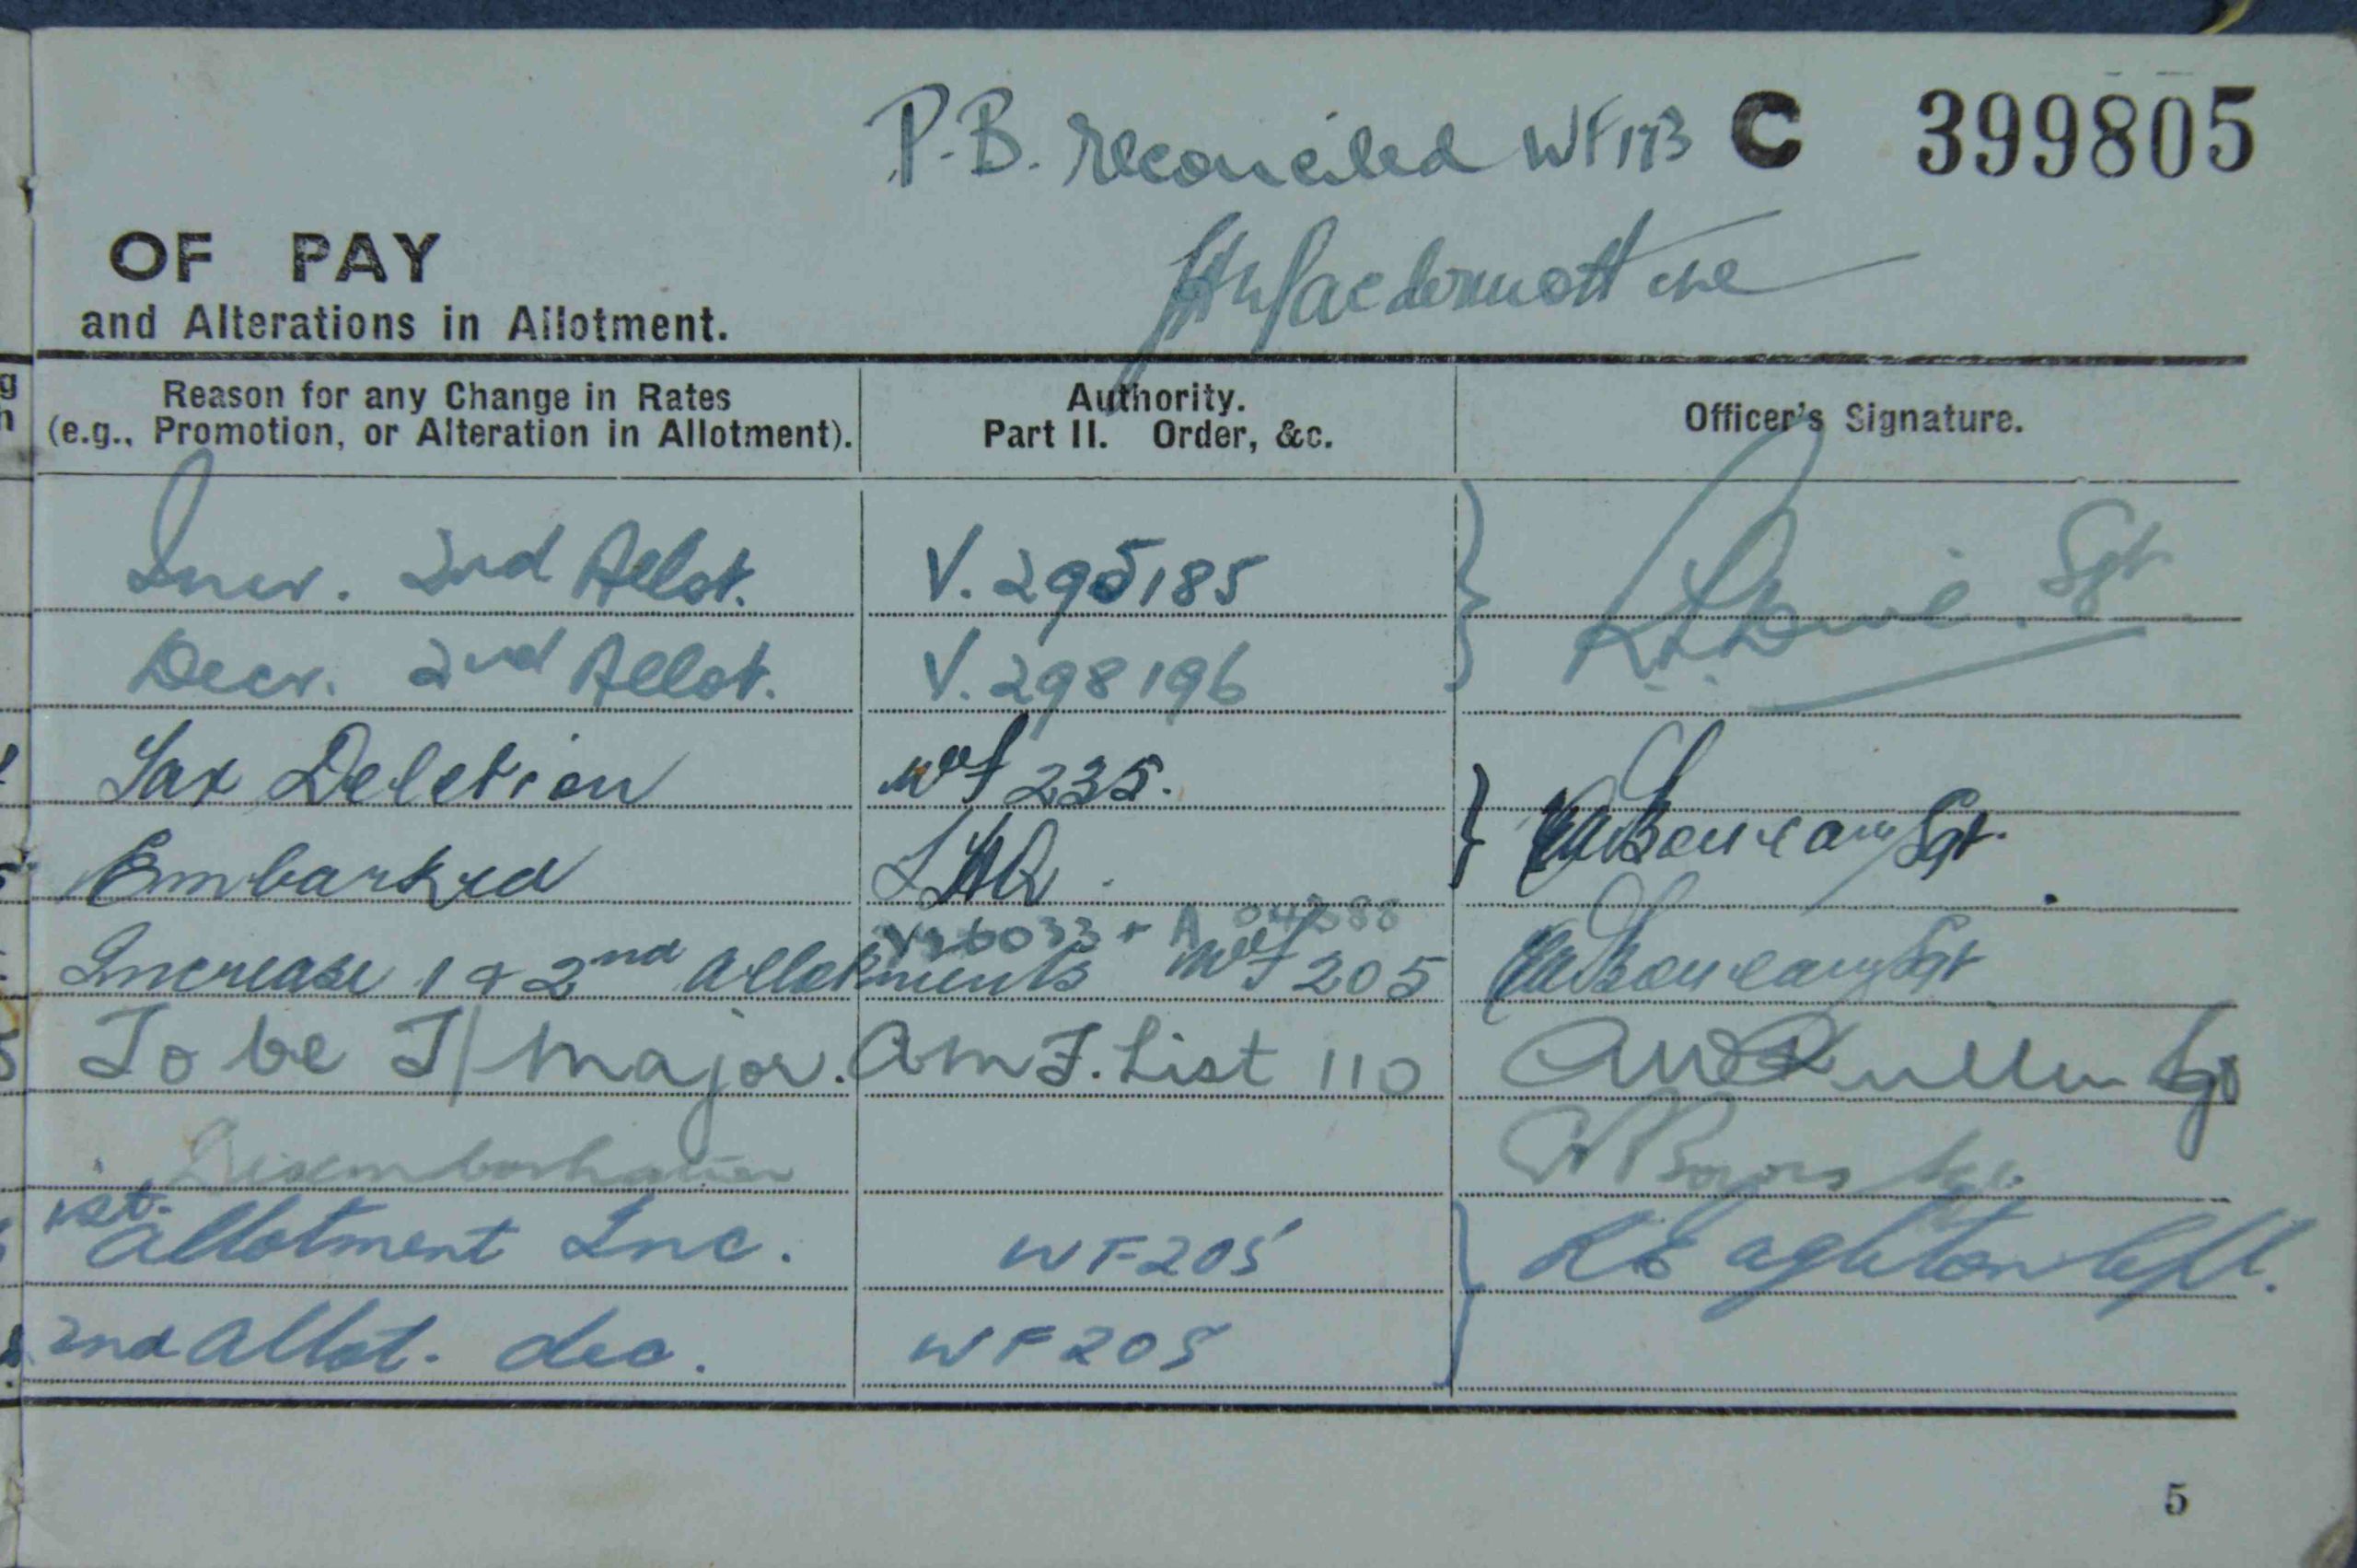 P.B. reconciled WF173 C 399805
OF PAY
and Alterations in Allotment.
Reason for any Change in Rates
(e.g., Promotion, or Alteration in Allotment).
Authority.
Part II. Order, &c.
Officer's Signature.
Incr. 2nd Allot. V. 295185 Sgt
Decr. 2nd Allot. V. 298196
Tax Deletion WF 235.
Embarked LHQ Sgt.
Increase 1 & 2nd allotments WF 205 Sgt
To be T/Major. AMF. List 110 Sgt
Disembarkation
1st.
allotment Inc. WF205
2nd allot. dec. WF205
5